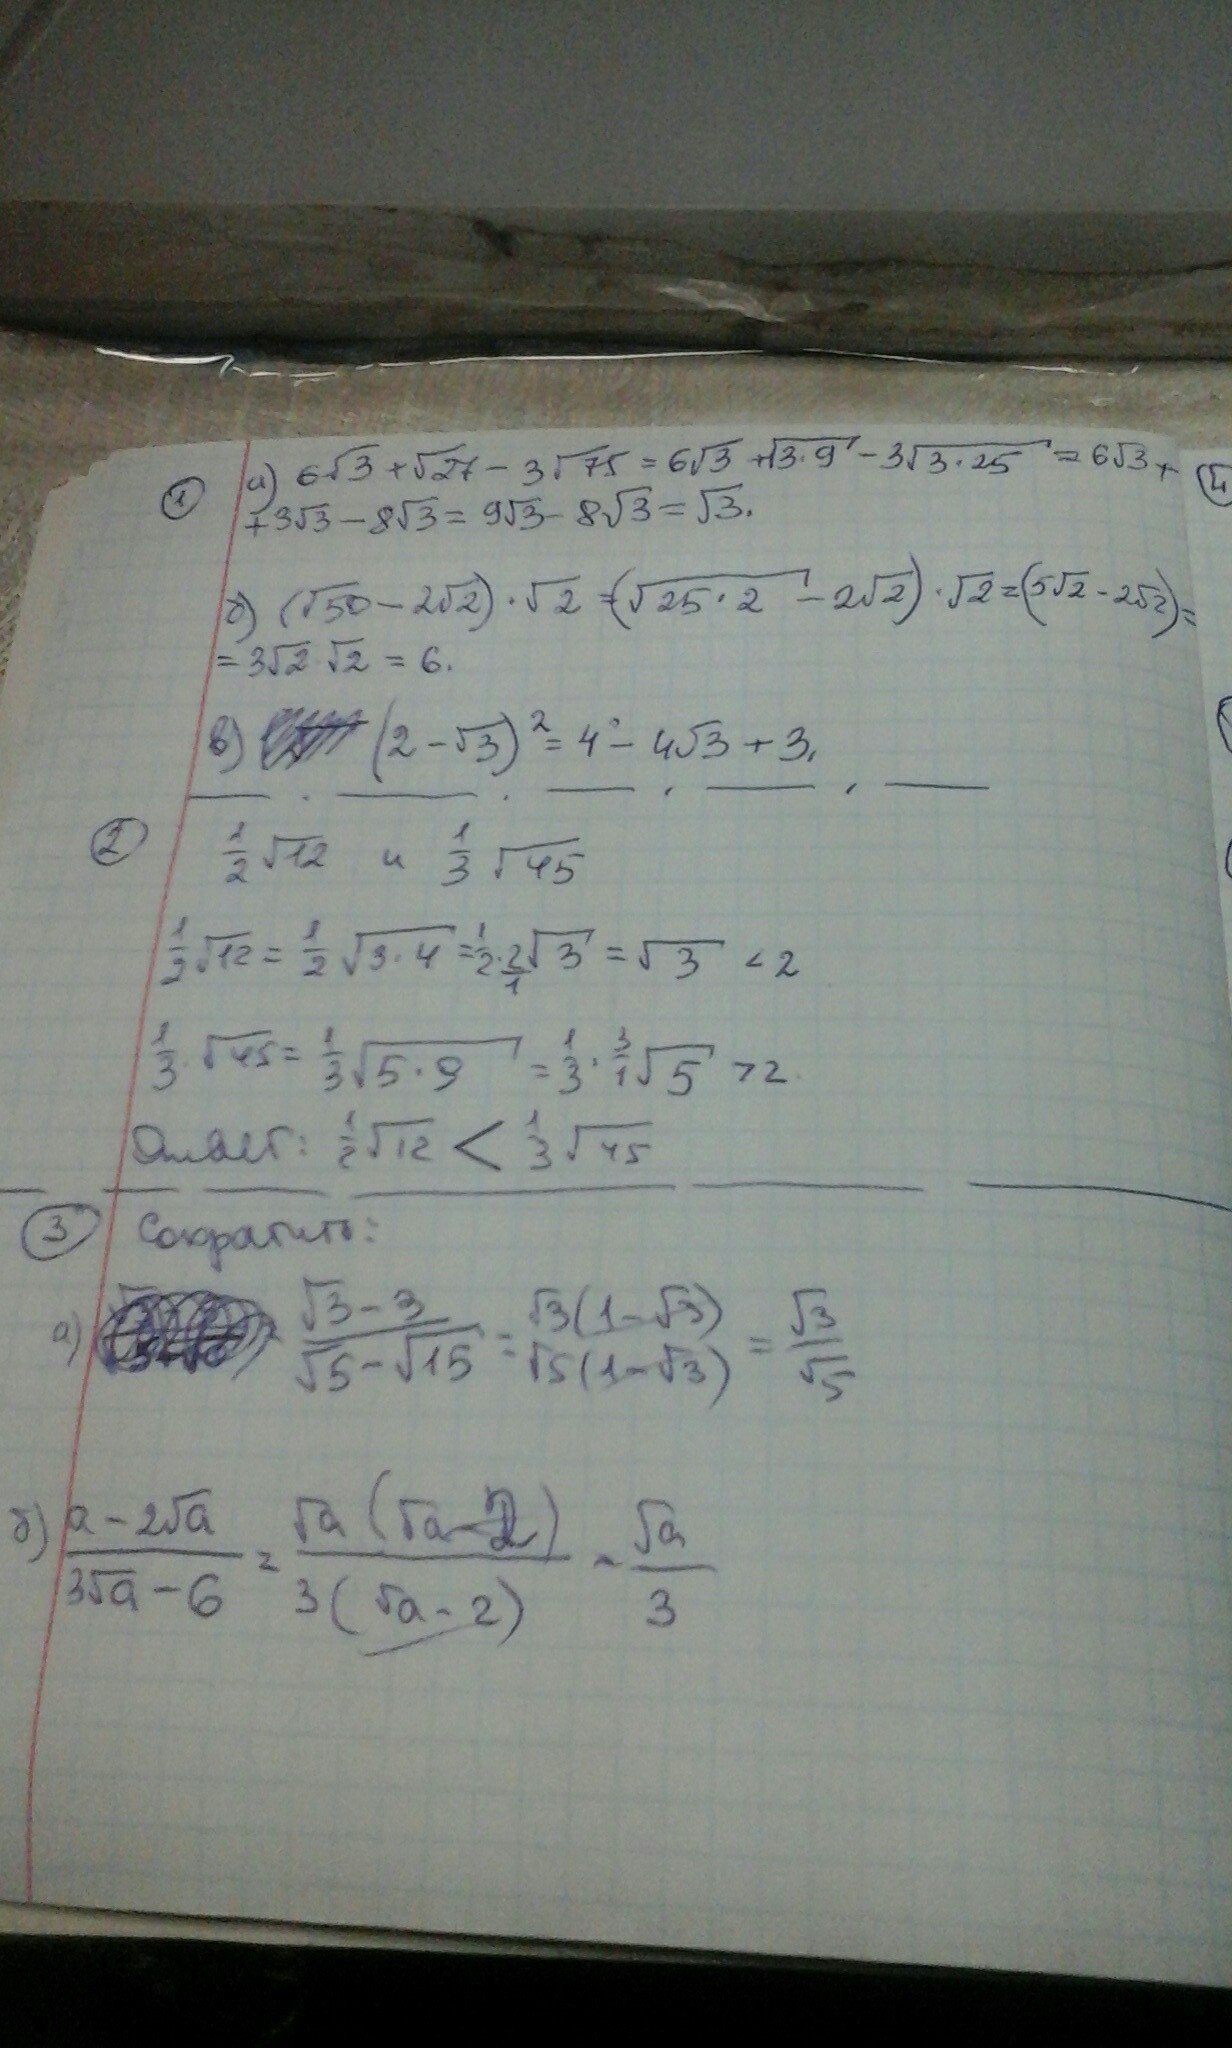 ① а) 6√3 + √27 − 3√75 = 6√3 + √3·9 − 3√3·25 = 6√3 +
+ 3√3 − 8√3 = 9√3 − 8√3 = √3.
б) (√50 − 2√2)·√2 = (√25·2 − 2√2)·√2 = (5√2 − 2√2) =
= 3√2·√2 = 6.
в) (2 − √3)² = 4 − 4√3 + 3.
② 1/2 √12 и 1/3 √45
1/2 √12 = 1/2 √3·4 = 1/2 · 2/1 √3 = √3 < 2
1/3 · √45 = 1/3 √5·9 = 1/3 · 3/1 √5 > 2
Ответ: 1/2 √12 < 1/3 √45
③ Сократить:
а) = (√3 − 3)/(√5 − √15) = √3(1 − √3)/√5(1 − √3) = √3/√5
б) (а − 2√а)/(3√а − 6) = √а(√а − 2)/3(√а − 2) = √а/3